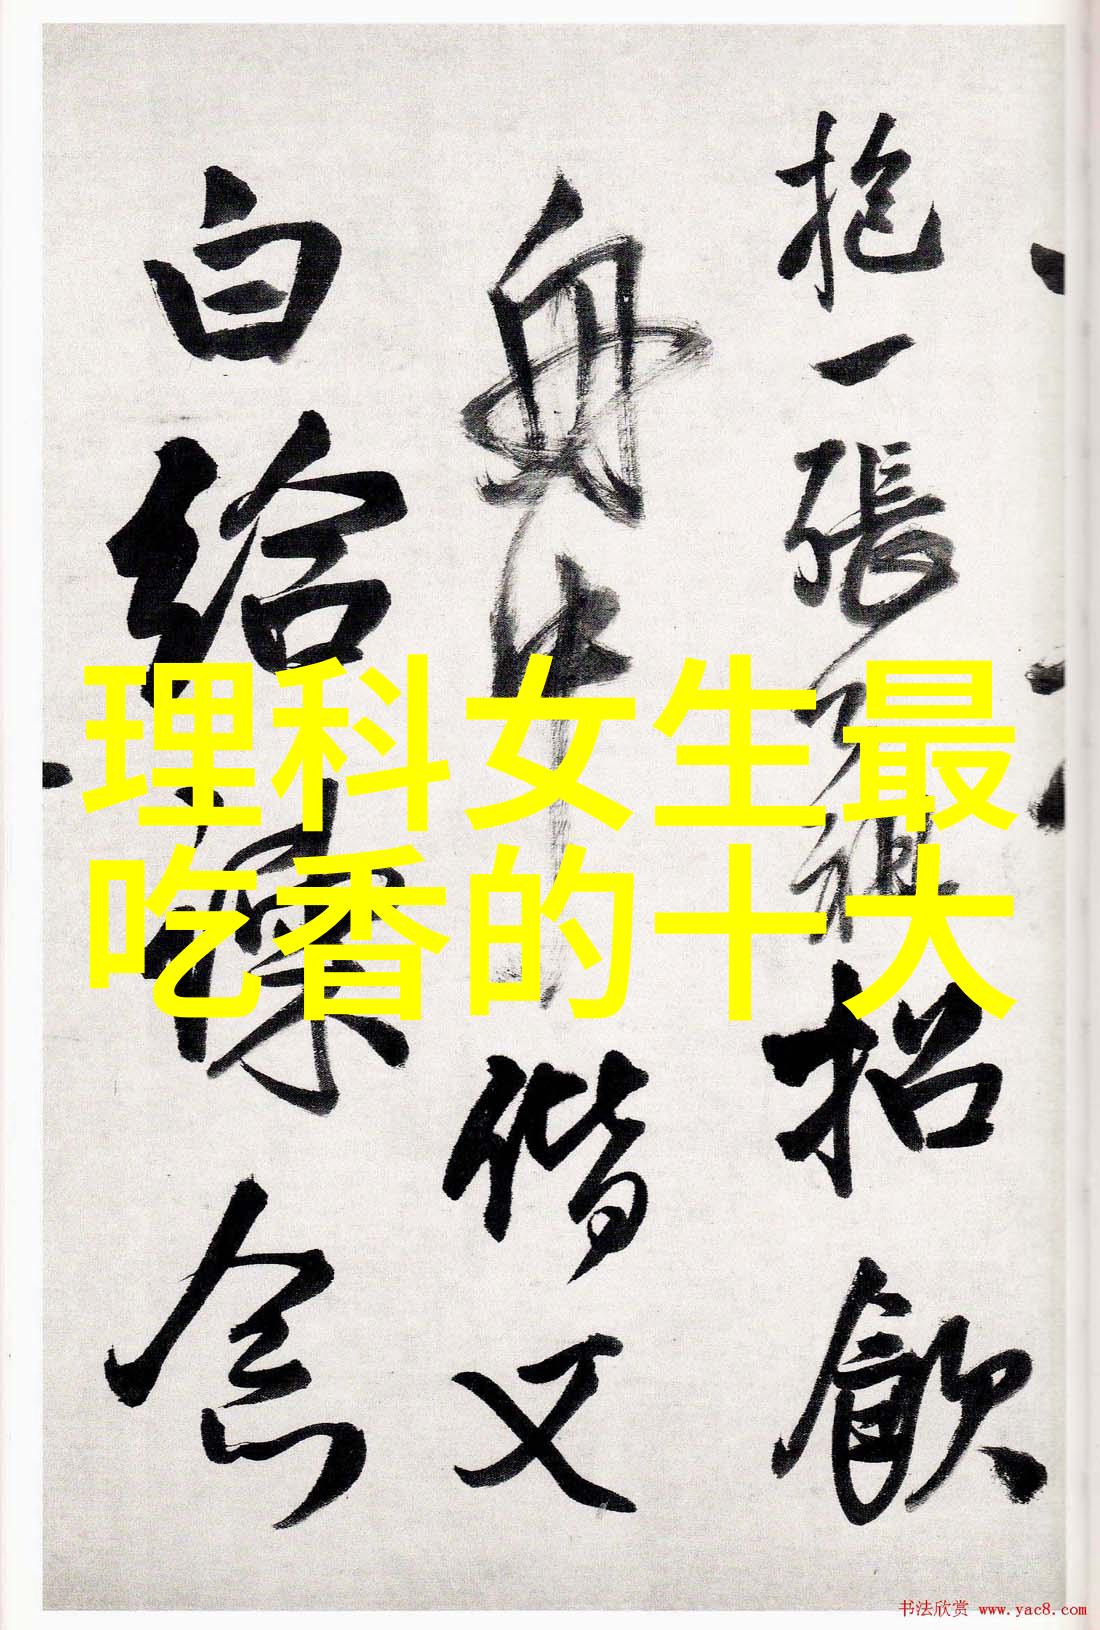 抱一張
招飲
舟中
偕又
白給
含
理科女生最
吃香的十大
书法欣赏 www.yac8.com